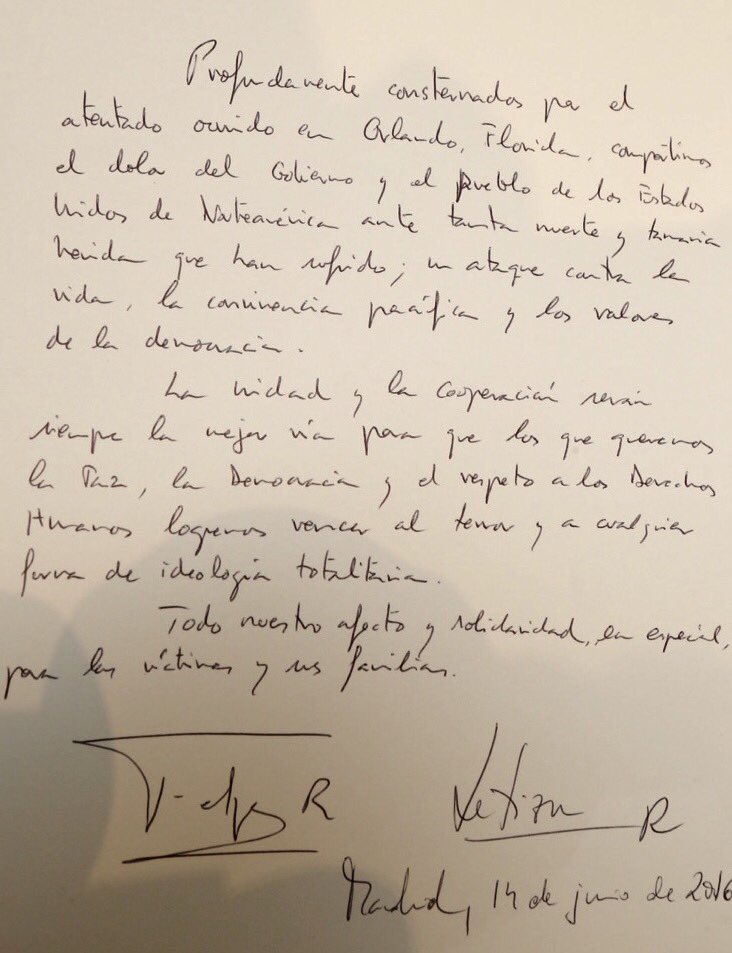 Profundamente consternados por el
atentado ocurrido en Orlando, Florida, compartimos
el dolor del Gobierno y el pueblo de los Estados
Unidos de Norteamérica ante tanta muerte y tantas
heridas que han sufrido; un ataque contra la
vida, la convivencia pacífica y los valores
de la democracia.
La unidad y la cooperación serán
siempre la mejor vía para que los que queremos
la Paz, la Democracia y el respeto a los Derechos
Humanos logremos vencer al terror y a cualquier
forma de ideología totalitaria.
Todo nuestro afecto y solidaridad, en especial,
para las víctimas y sus familias.
Felipe R Letizia R
Madrid, 14 de junio de 2016